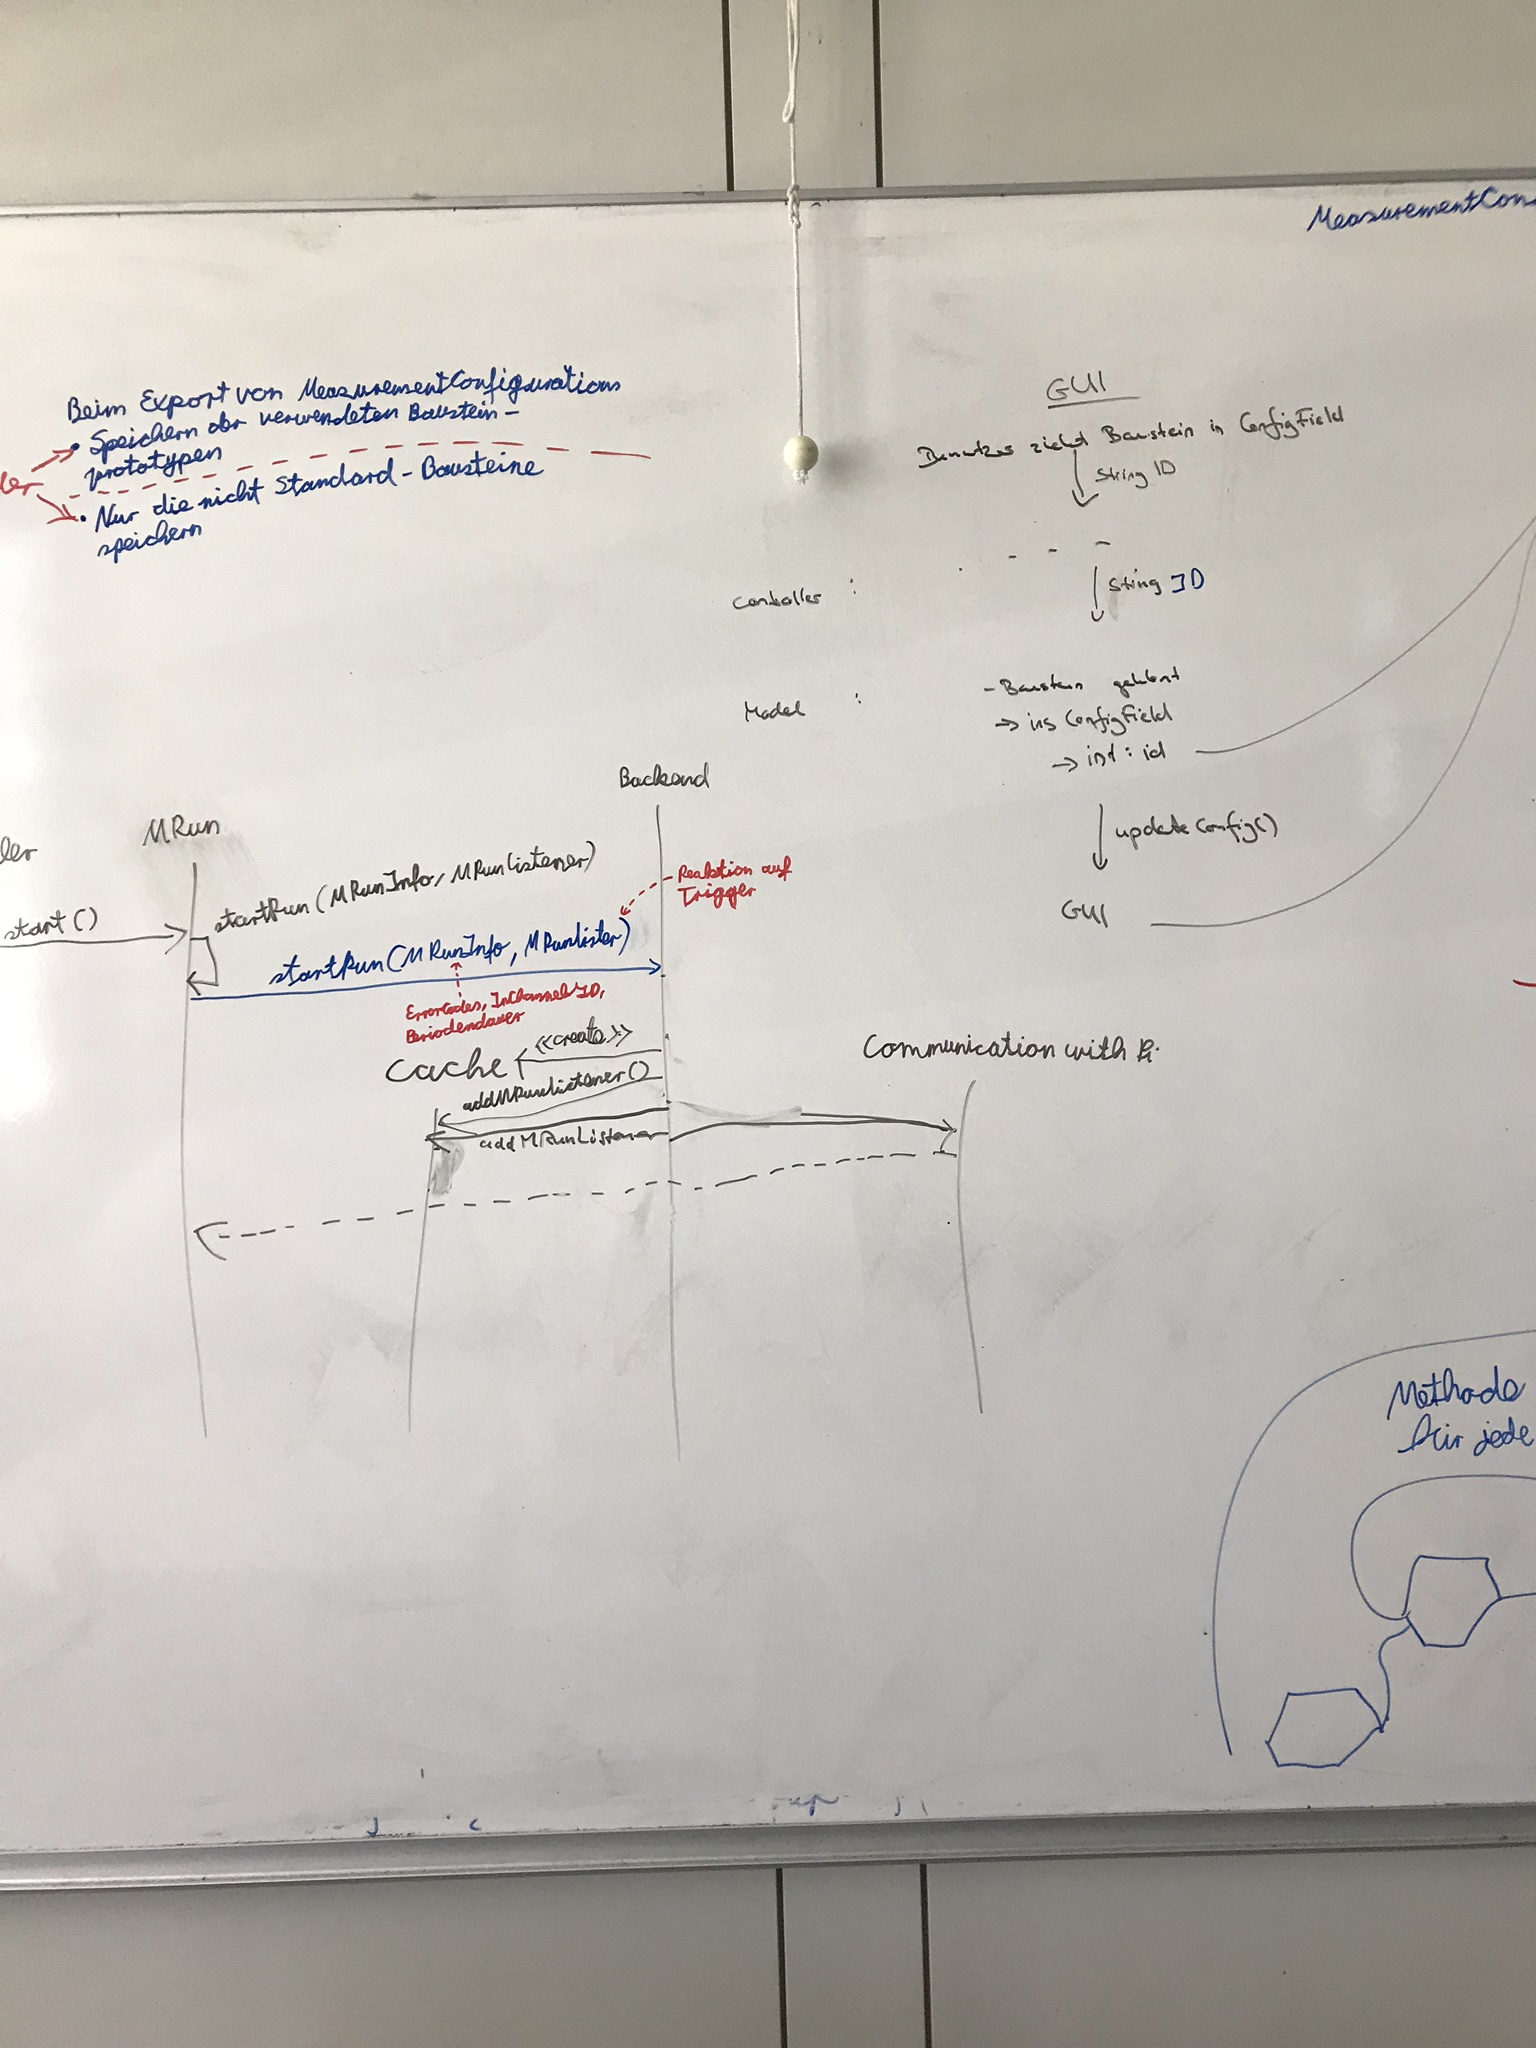 MeasurementCon
Beim Export von MeasurementConfigurations
• Speichern der verwendeten Baustein-
prototypen
der
• Nur die nicht Standard-Bausteine
speichern
GUI
Benutzer zieht Baustein in ConfigField
String ID
Controller :
String ID
Model :
- Baustein geklont
→ ins ConfigField
→ int : id
updateConfig()
GUI
Backend
MRun
ler
start()
startRun(MRunInfo, MRunListener)
Reaktion auf
Trigger
startRun(MRunInfo, MRunlister)
ErrorCodes, InChannel ID,
Periodendauer
<<create>>
Cache
Communication with Pi
addMRunListener()
addMRunListener
Methode
für jede